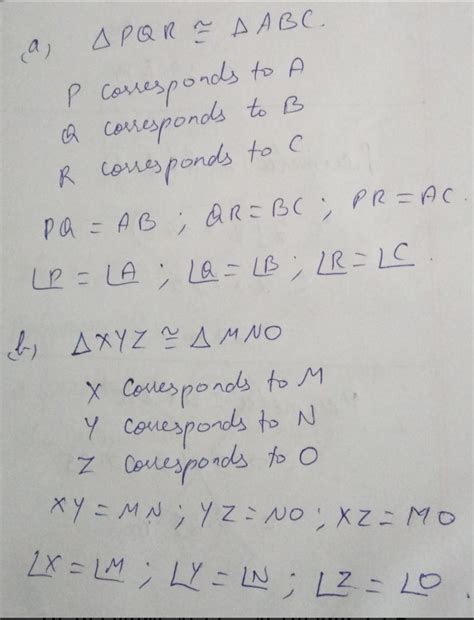 (a) △PQR ≅ △ABC.
P corresponds to A
Q corresponds to B
R corresponds to C
PQ = AB ; QR = BC ; PR = AC.
∠P = ∠A ; ∠Q = ∠B ; ∠R = ∠C.
(b) △XYZ ≅ △MNO
X corresponds to M
Y corresponds to N
Z corresponds to O
XY = MN ; YZ = NO ; XZ = MO
∠X = ∠M ; ∠Y = ∠N ; ∠Z = ∠O.